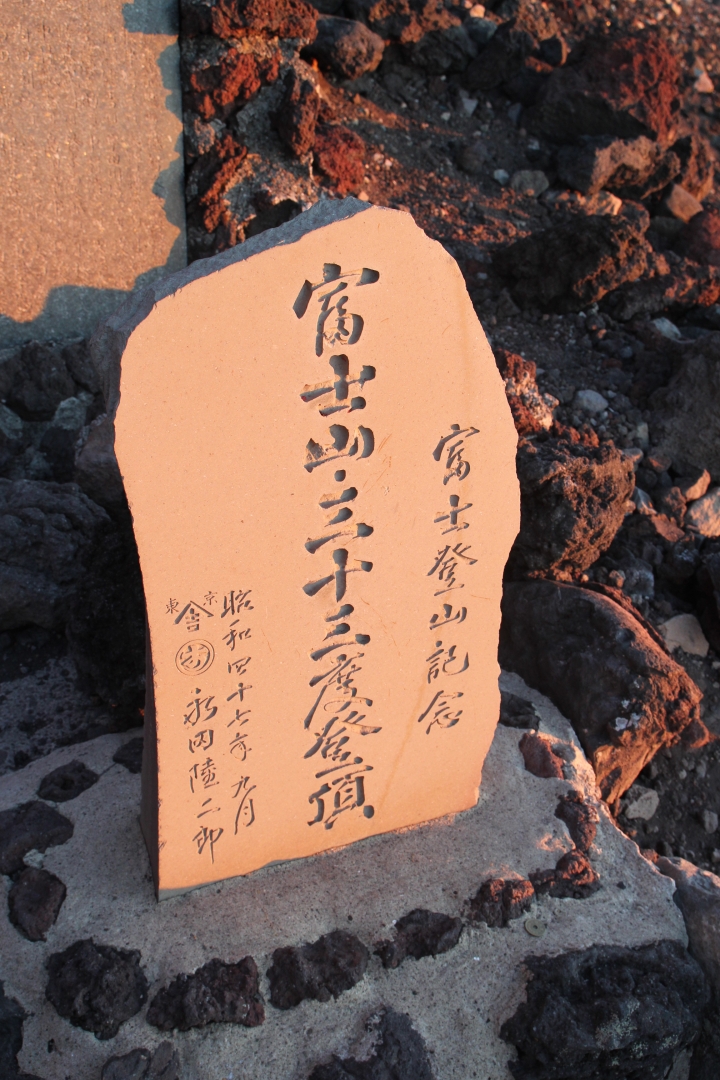 富士登山記念
富士山・三十三度登頂
昭和四十七年九月
東京
永田陸二郎